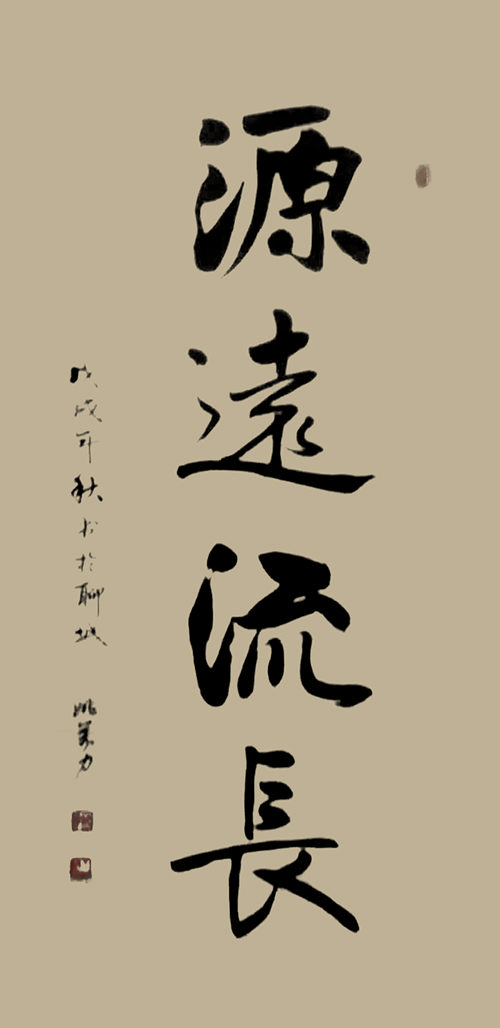 源遠流長
戊戌年秋书於聊城 姚万力